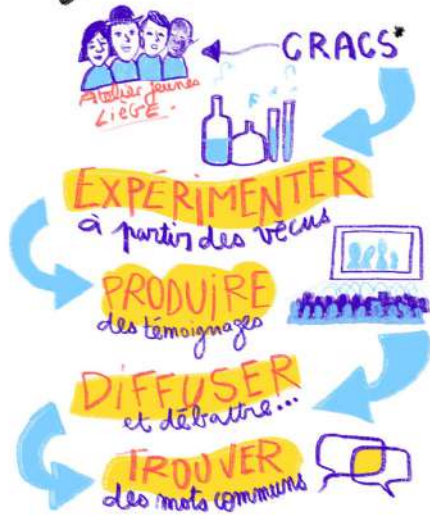 CRACS*
Atelier jeunes
LIÈGE.
EXPÉRIMENTER
à partir des vécus
PRODUIRE
des témoignages
DIFFUSER
et débattre...
TROUVER
des mots communs